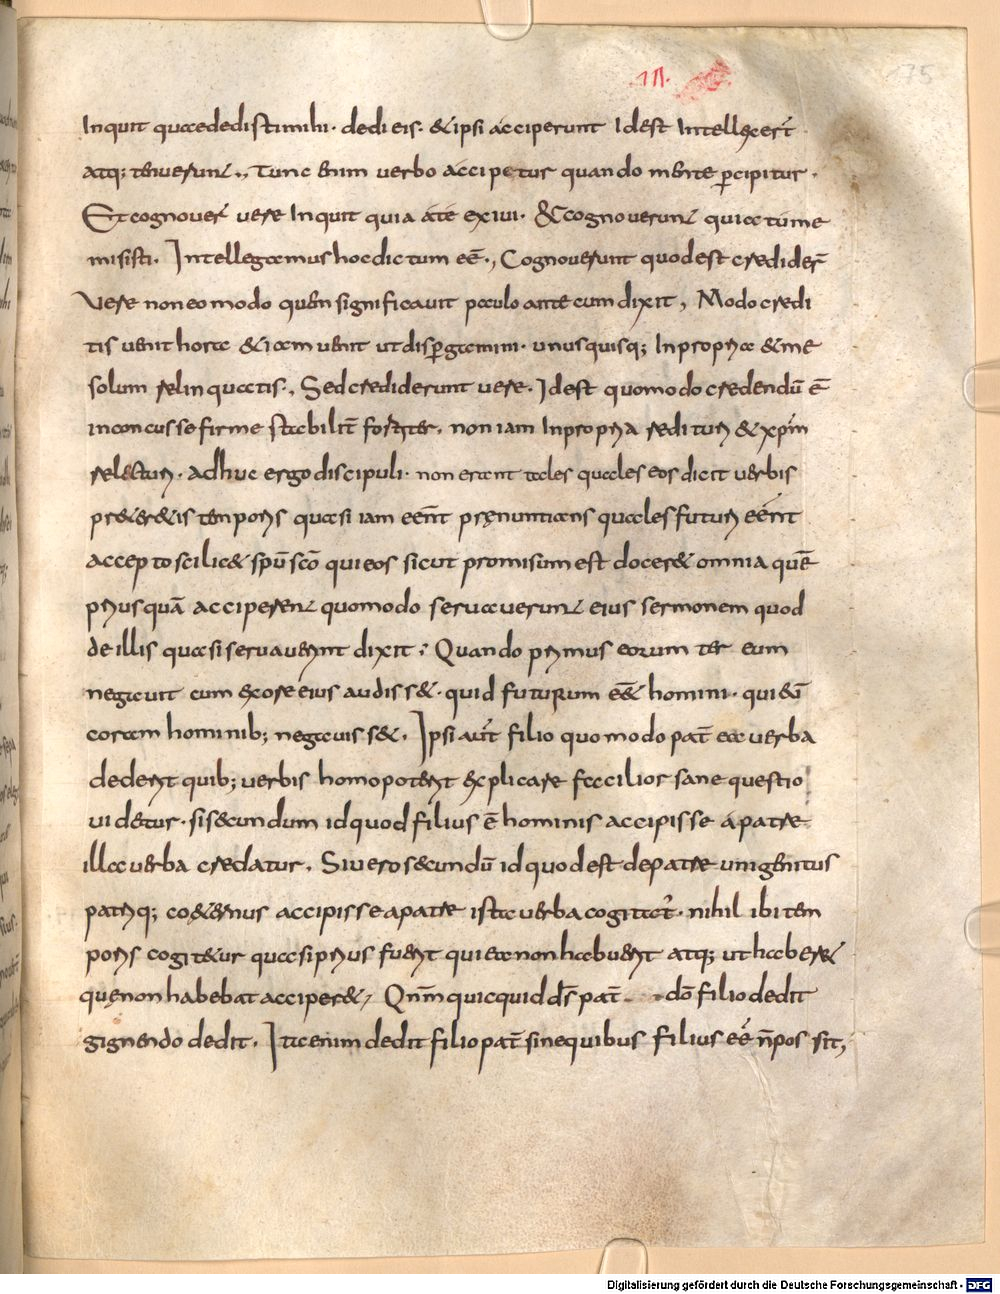 .III. 175
Inquit quaededistimihi· dedi eis· & ipsi acciperunt Idest Intellexer̄t
atq; tenuerunt., Tunc enim uerbo accipetur quando mente p̄cipitur·
Et cognouer̄ uere Inquit quia áté exiui· & cognouerunt quia tú me
misisti· Intellegamus hoc dictum eē., Cognouerunt quod est credider̄
Vere non eo modo quem significauit paulo ante cum dixit, Modo credi
tis uenit hora & iam uenit ut disp̄gamini· unusquisq; In propria & me
solum relinquatis., Sed crediderunt uere· Idest quomodo credendū ē
inconcusse firme stabilit̄ fortiter, non iam In propria redituri & xp̄m
relicturi· adhuc ergo discipuli· non erant tales quales eos dicit uerbis
pr&er&is temporis quasi iam eēnt pręnuntians quales futuri eēnt
accepto scilic& sp̄u sc̄o qui eos sicut promisum est docer& omnia quē
priusquā acciperent quomodo seruauerunt eius sermonem quod
de illis quasi seruauerint dixit; Quando primus eorum ter eum
negauit cum ex ore eius audiss&· quid futurum eē& homini· qui eū
coram hominib; negauiss&. Ipsi aut̄ filio quomodo pat̄ ea uerba
dederit quib; uerbis homo poterit explicare facilior sane questio
uidetur· si secundum id quod filius ē hominis accipisse á patre
illa uerba credatur. Si uero secundū id quod est de patre unigenitus
patriq; co&ernus accipisse a patre ista uerba cogitat̄· nihil ibi tem
poris cogit&ur quasi prius fuerit qui ea non habuerit atq; ut haberet
quę non habebat acciper&, Qn̄m quicquid d̄s pat̄ d̄o filio dedit
gignendo dedit. Ita enim dedit filio pat̄ sine quibus filius eē n̄ pos sit,
Digitalisierung gefördert durch die Deutsche Forschungsgemeinschaft - DFG